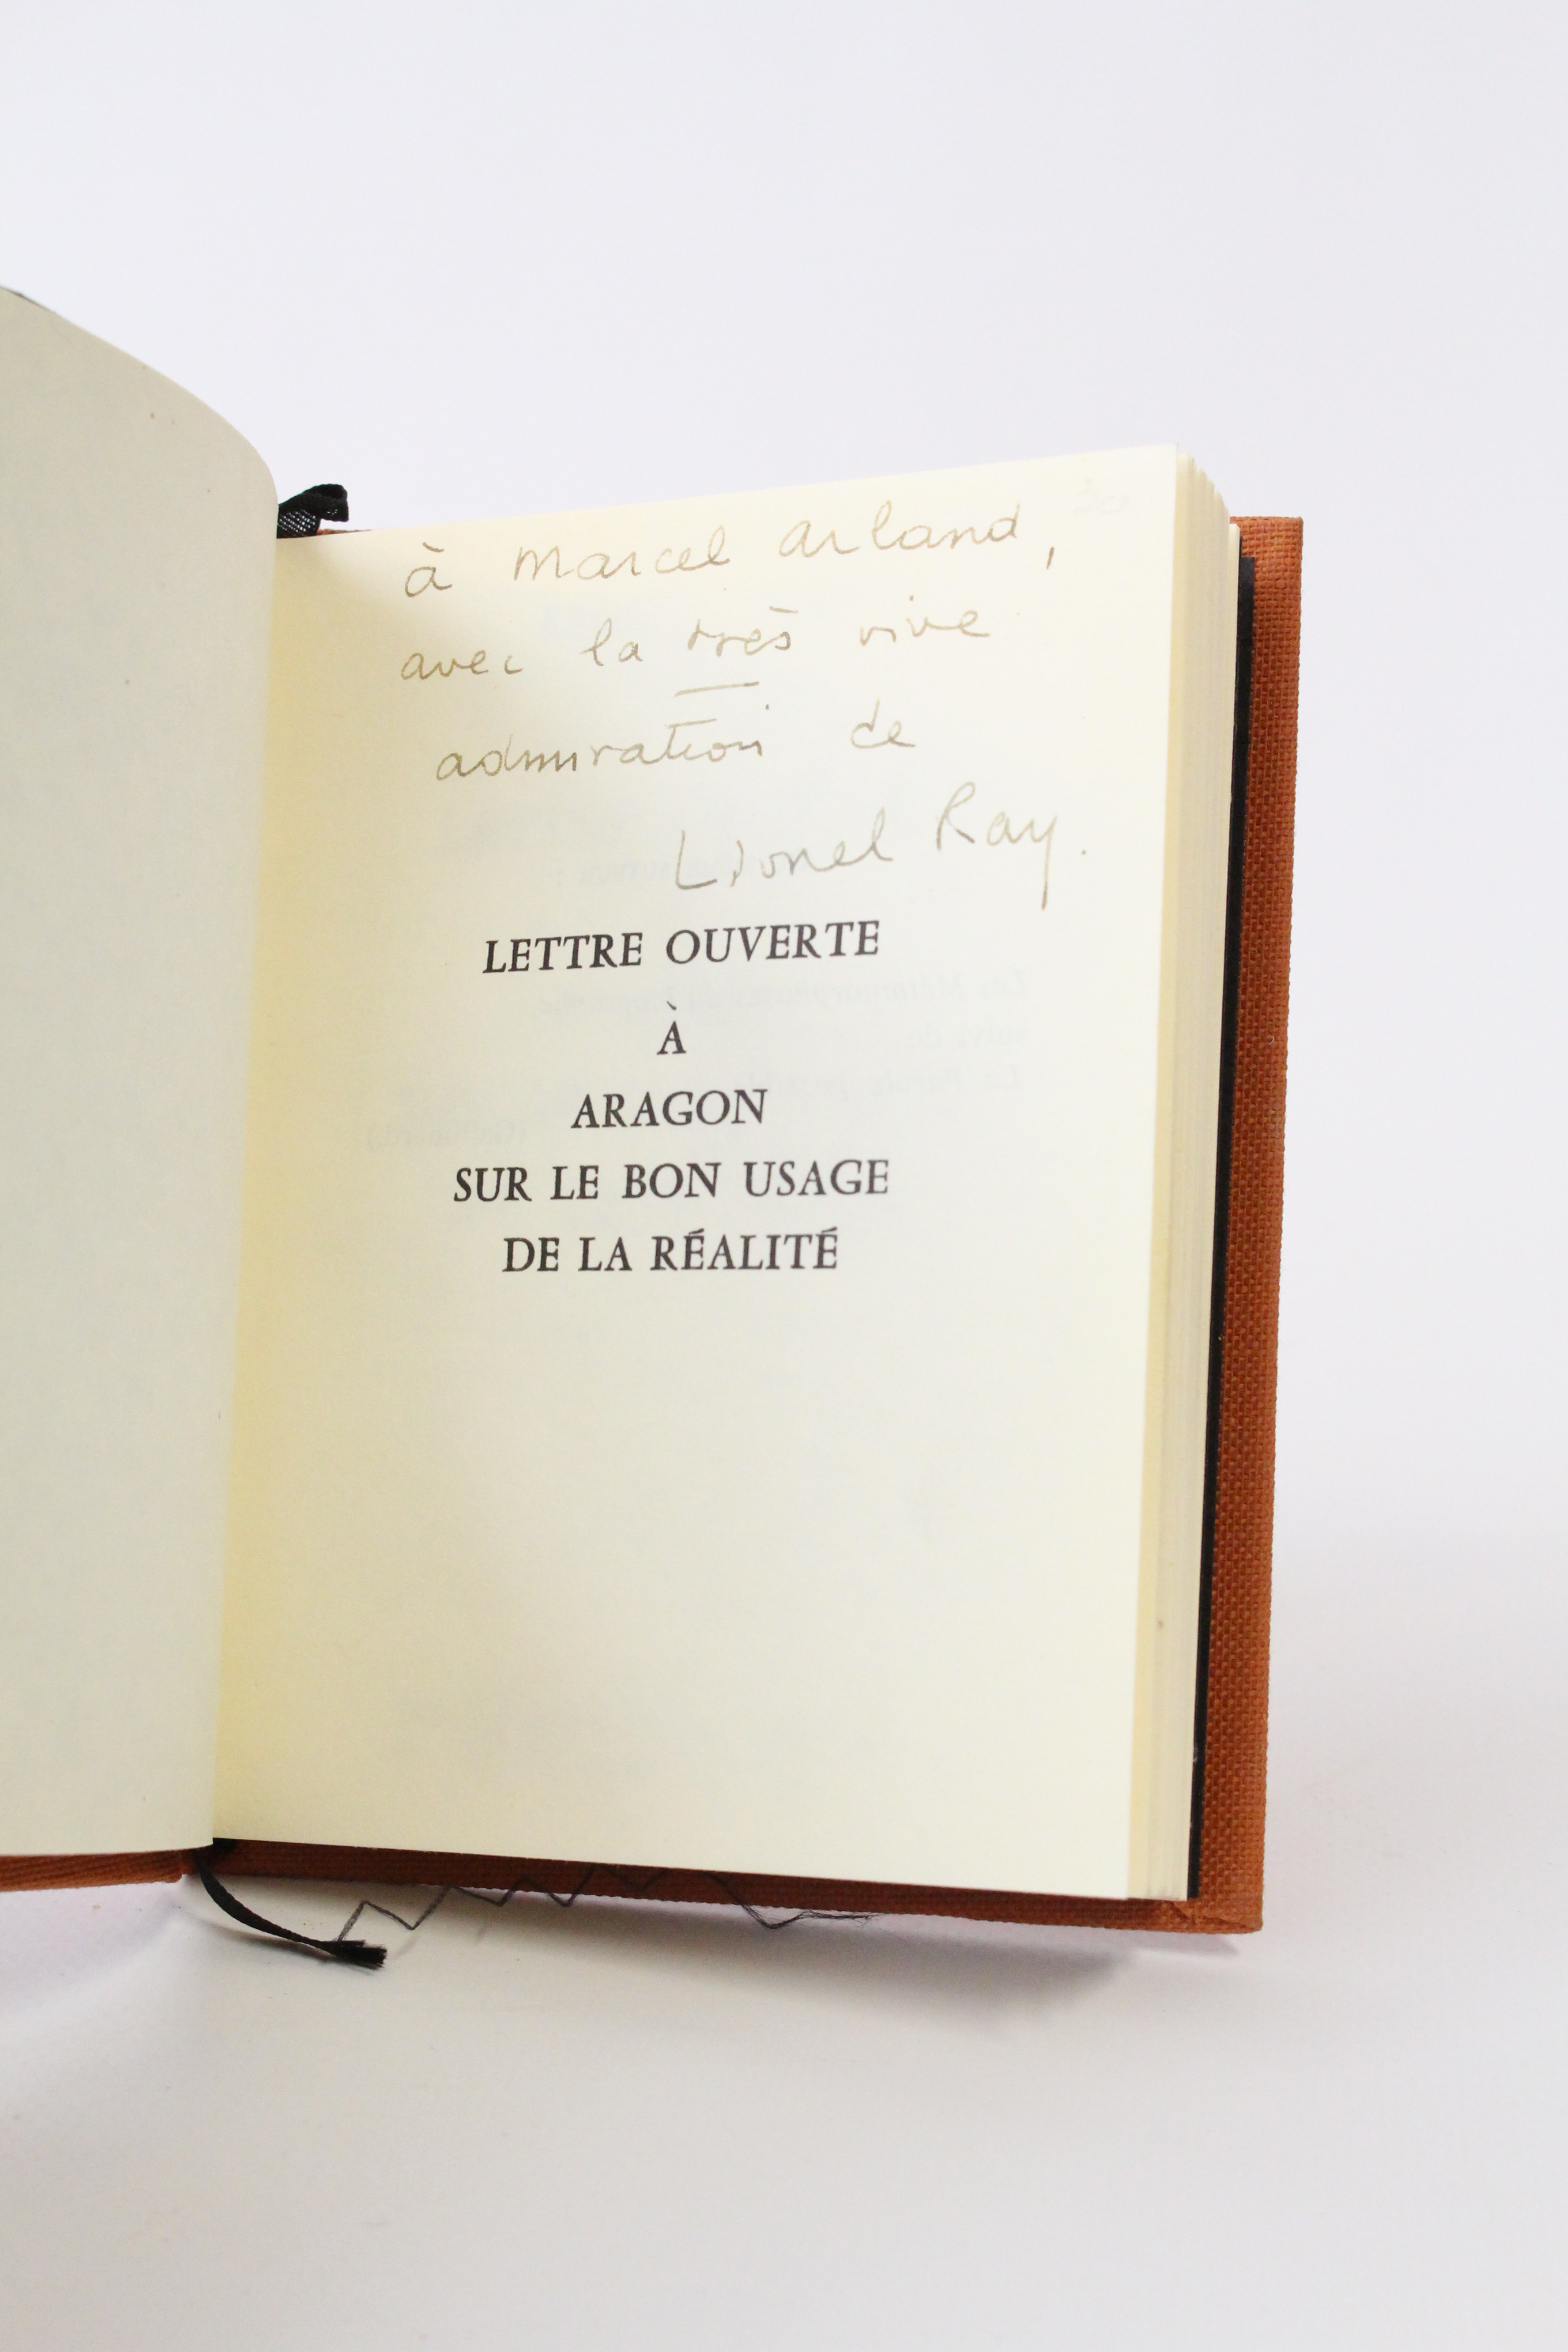 à Marcel Arland,
avec la très vive
admiration de
Lionel Ray.
LETTRE OUVERTE
À
ARAGON
SUR LE BON USAGE
DE LA RÉALITÉ